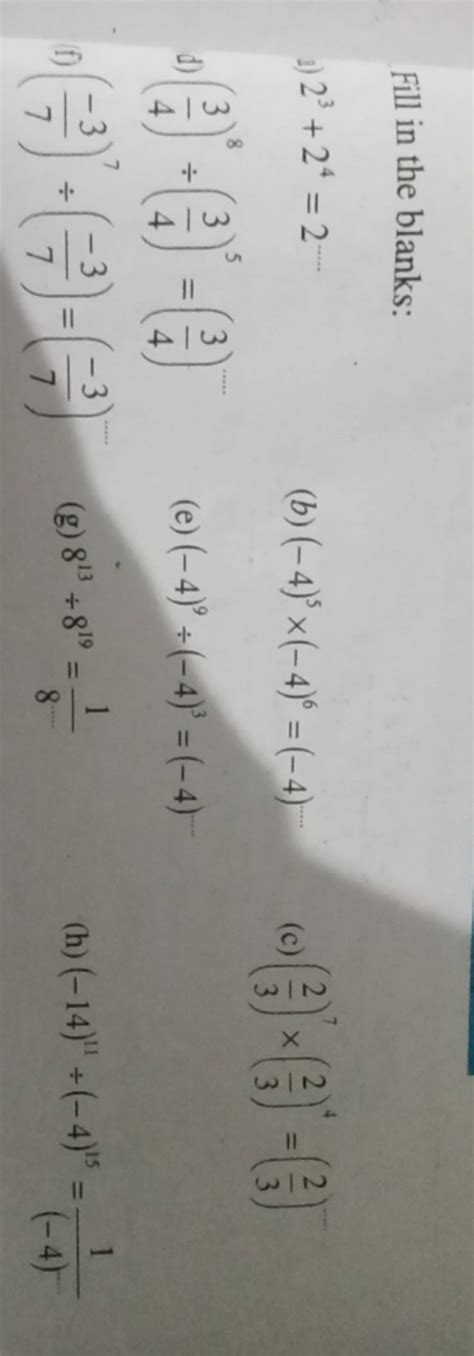 Fill in the blanks:
a) 2³ + 2⁴ = 2.....
(b) (−4)⁵ × (−4)⁶ = (−4).....
(c) (2/3)⁷ × (2/3)⁴ = (2/3).....
d) (3/4)⁸ ÷ (3/4)⁵ = (3/4).....
(e) (−4)⁹ ÷ (−4)³ = (−4).....
(f) (−3/7)⁷ ÷ (−3/7) = (−3/7).....
(g) 8¹³ ÷ 8¹⁹ = 1/8.....
(h) (−14)¹¹ ÷ (−4)¹⁵ = 1/(−4).....